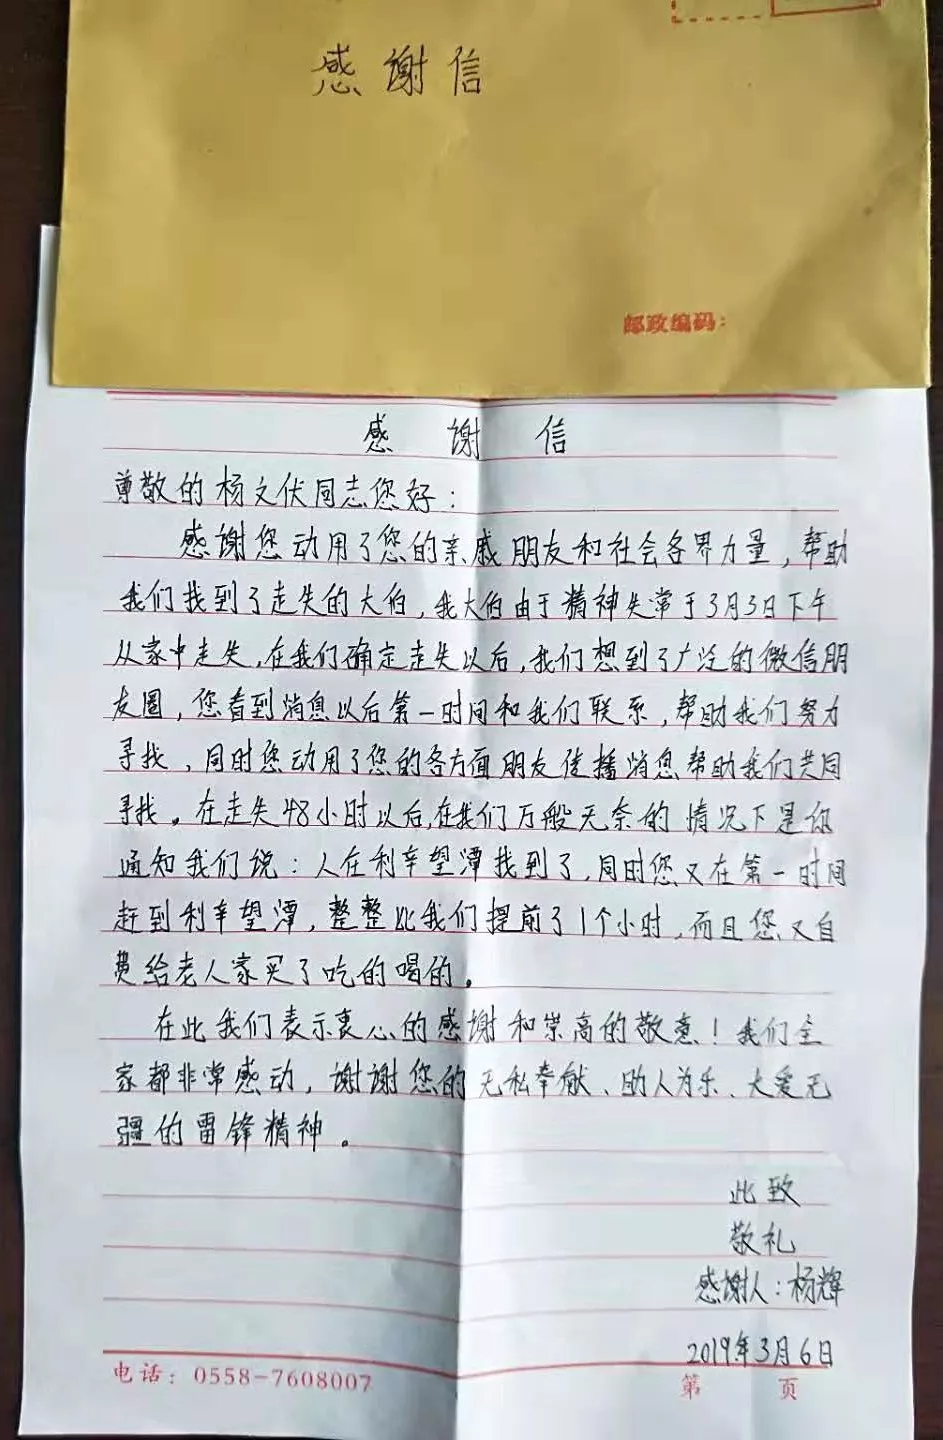 感谢信
邮政编码：
感谢信
尊敬的杨文伏同志您好：
感谢您动用了您的亲戚朋友和社会各界力量，帮助
我们找到了走失的大伯，我大伯由于精神失常于3月3日下午
从家中走失，在我们确定走失以后，我们想到了广泛的微信朋
友圈，您看到消息以后第一时间和我们联系，帮助我们努力
寻找，同时您动用了您的各方面朋友传播消息帮助我们共同
寻找。在走失48小时以后，在我们万般无奈的情况下是你
通知我们说：人在利辛望潭找到了，同时您又在第一时间
赶到利辛望潭，整整比我们提前了1个小时，而且您又自
费给老人家买了吃的喝的。
在此我们表示衷心的感谢和崇高的敬意！我们全
家都非常感动，谢谢您的无私奉献、助人为乐、大爱无
疆的雷锋精神。
此致
敬礼
感谢人：杨辉
2019年3月6日
电话：0558-7608007
第 页